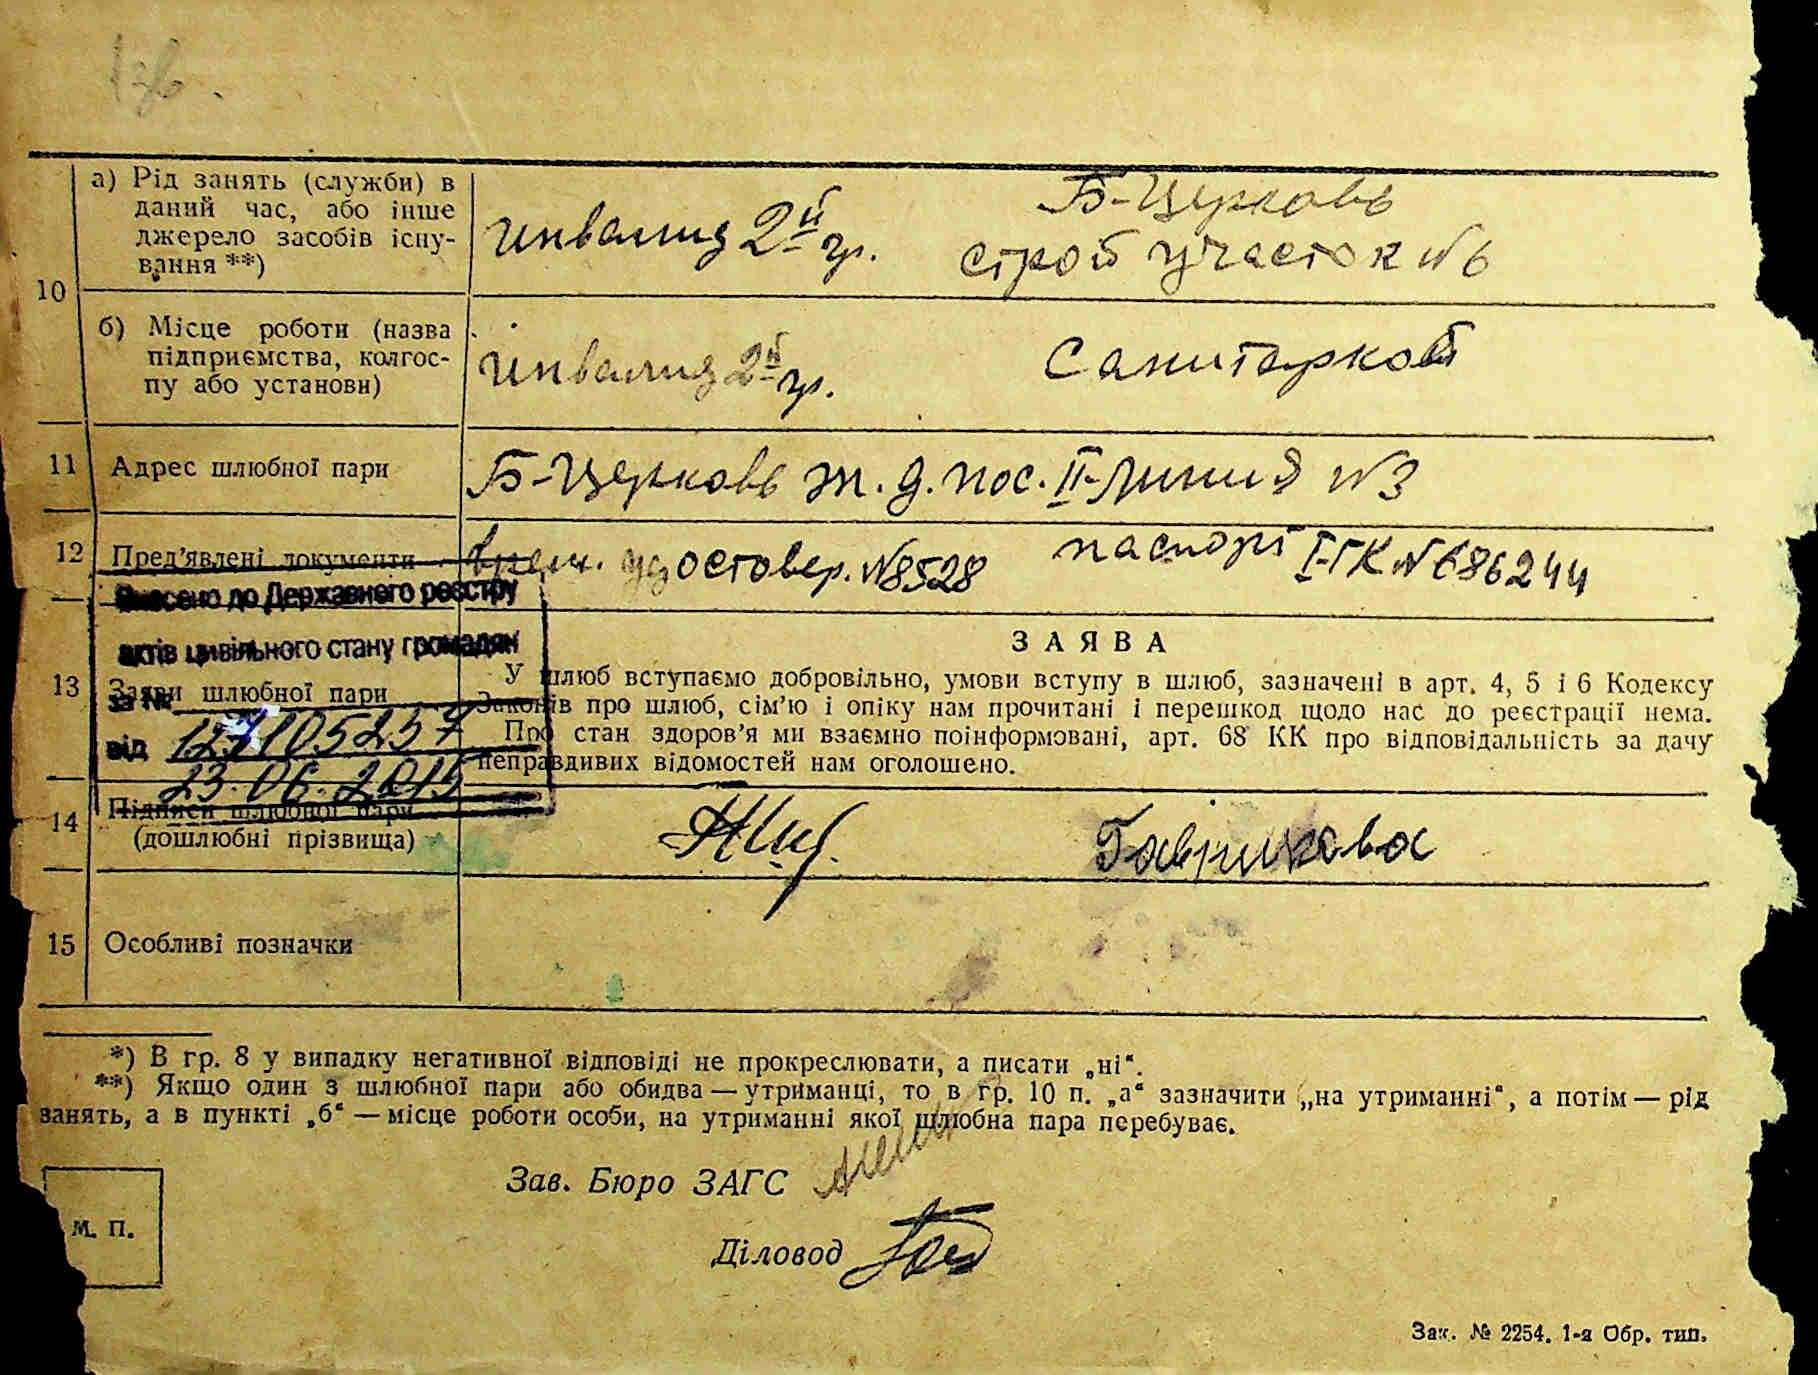 а) Рід занять (служби) в
даний час, або інше
джерело засобів існу-
вання **)
инвалид 2й гр.
Б-Церковь
строй участок №6
10
б) Місце роботи (назва
підприємства, колгос-
пу або установи)
инвалид 2й гр.
Санитаркой
11 Адрес шлюбної пари
Б-Церковь ж.д.пос. II-Линия №3
12 Пред'явлені документи
врем. удостовер. №8528 паспорт I-ГК №686244
Внесено до Державного реєстру
актів цивільного стану громадян
за №
від
23.06.2015
13 Заяви шлюбної пари
ЗАЯВА
У шлюб вступаємо добровільно, умови вступу в шлюб, зазначені в арт. 4, 5 і 6 Кодексу
Законів про шлюб, сім'ю і опіку нам прочитані і перешкод щодо нас до реєстрації нема.
Про стан здоров'я ми взаємно поінформовані, арт. 68 КК про відповідальність за дачу
неправдивих відомостей нам оголошено.
14 Підписи шлюбної пари
(дошлюбні прізвища)
15 Особливі позначки
*) В гр. 8 у випадку негативної відповіді не прокреслювати, а писати „ні“.
**) Якщо один з шлюбної пари або обидва — утриманці, то в гр. 10 п. „а“ зазначити „на утриманні“, а потім — рід
занять, а в пункті „б“ — місце роботи особи, на утриманні якої шлюбна пара перебуває.
Зав. Бюро ЗАГС
М. П.
Діловод
Зак. № 2254. 1-а Обр. тип.